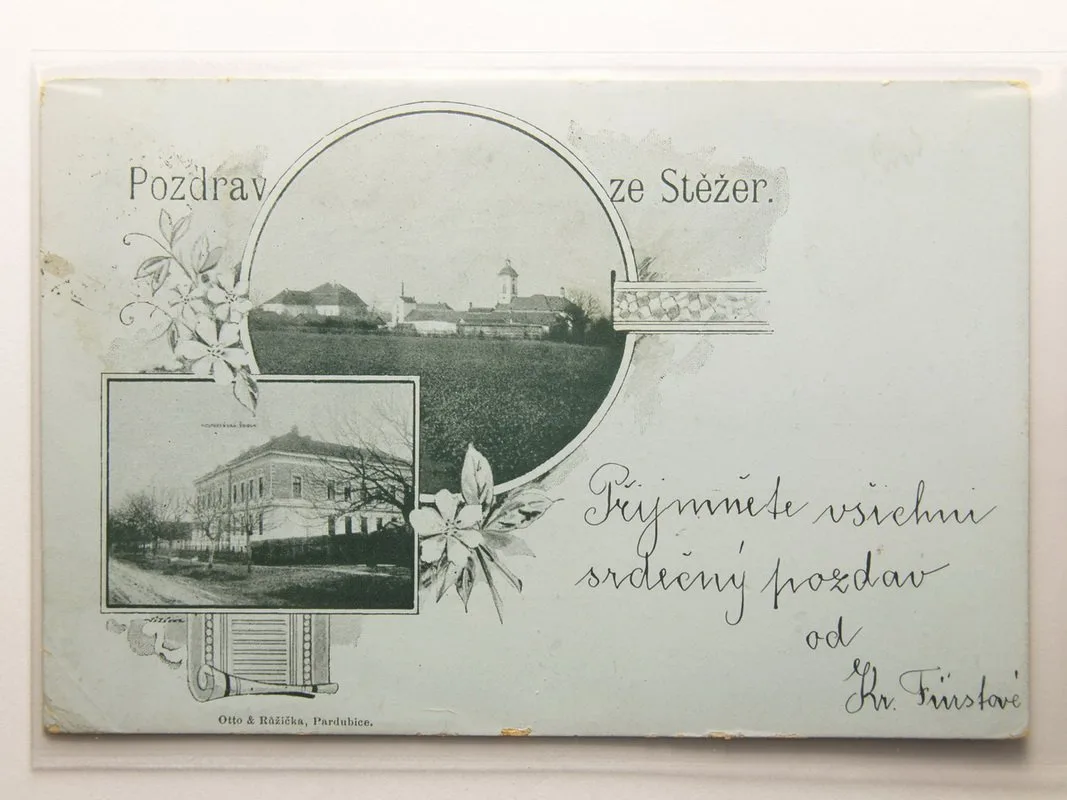 Pozdrav ze Stěžer.
Přijmněte všichni
srdečný pozdav
od
Kr. Fürstové
Otto & Růžička, Pardubice.